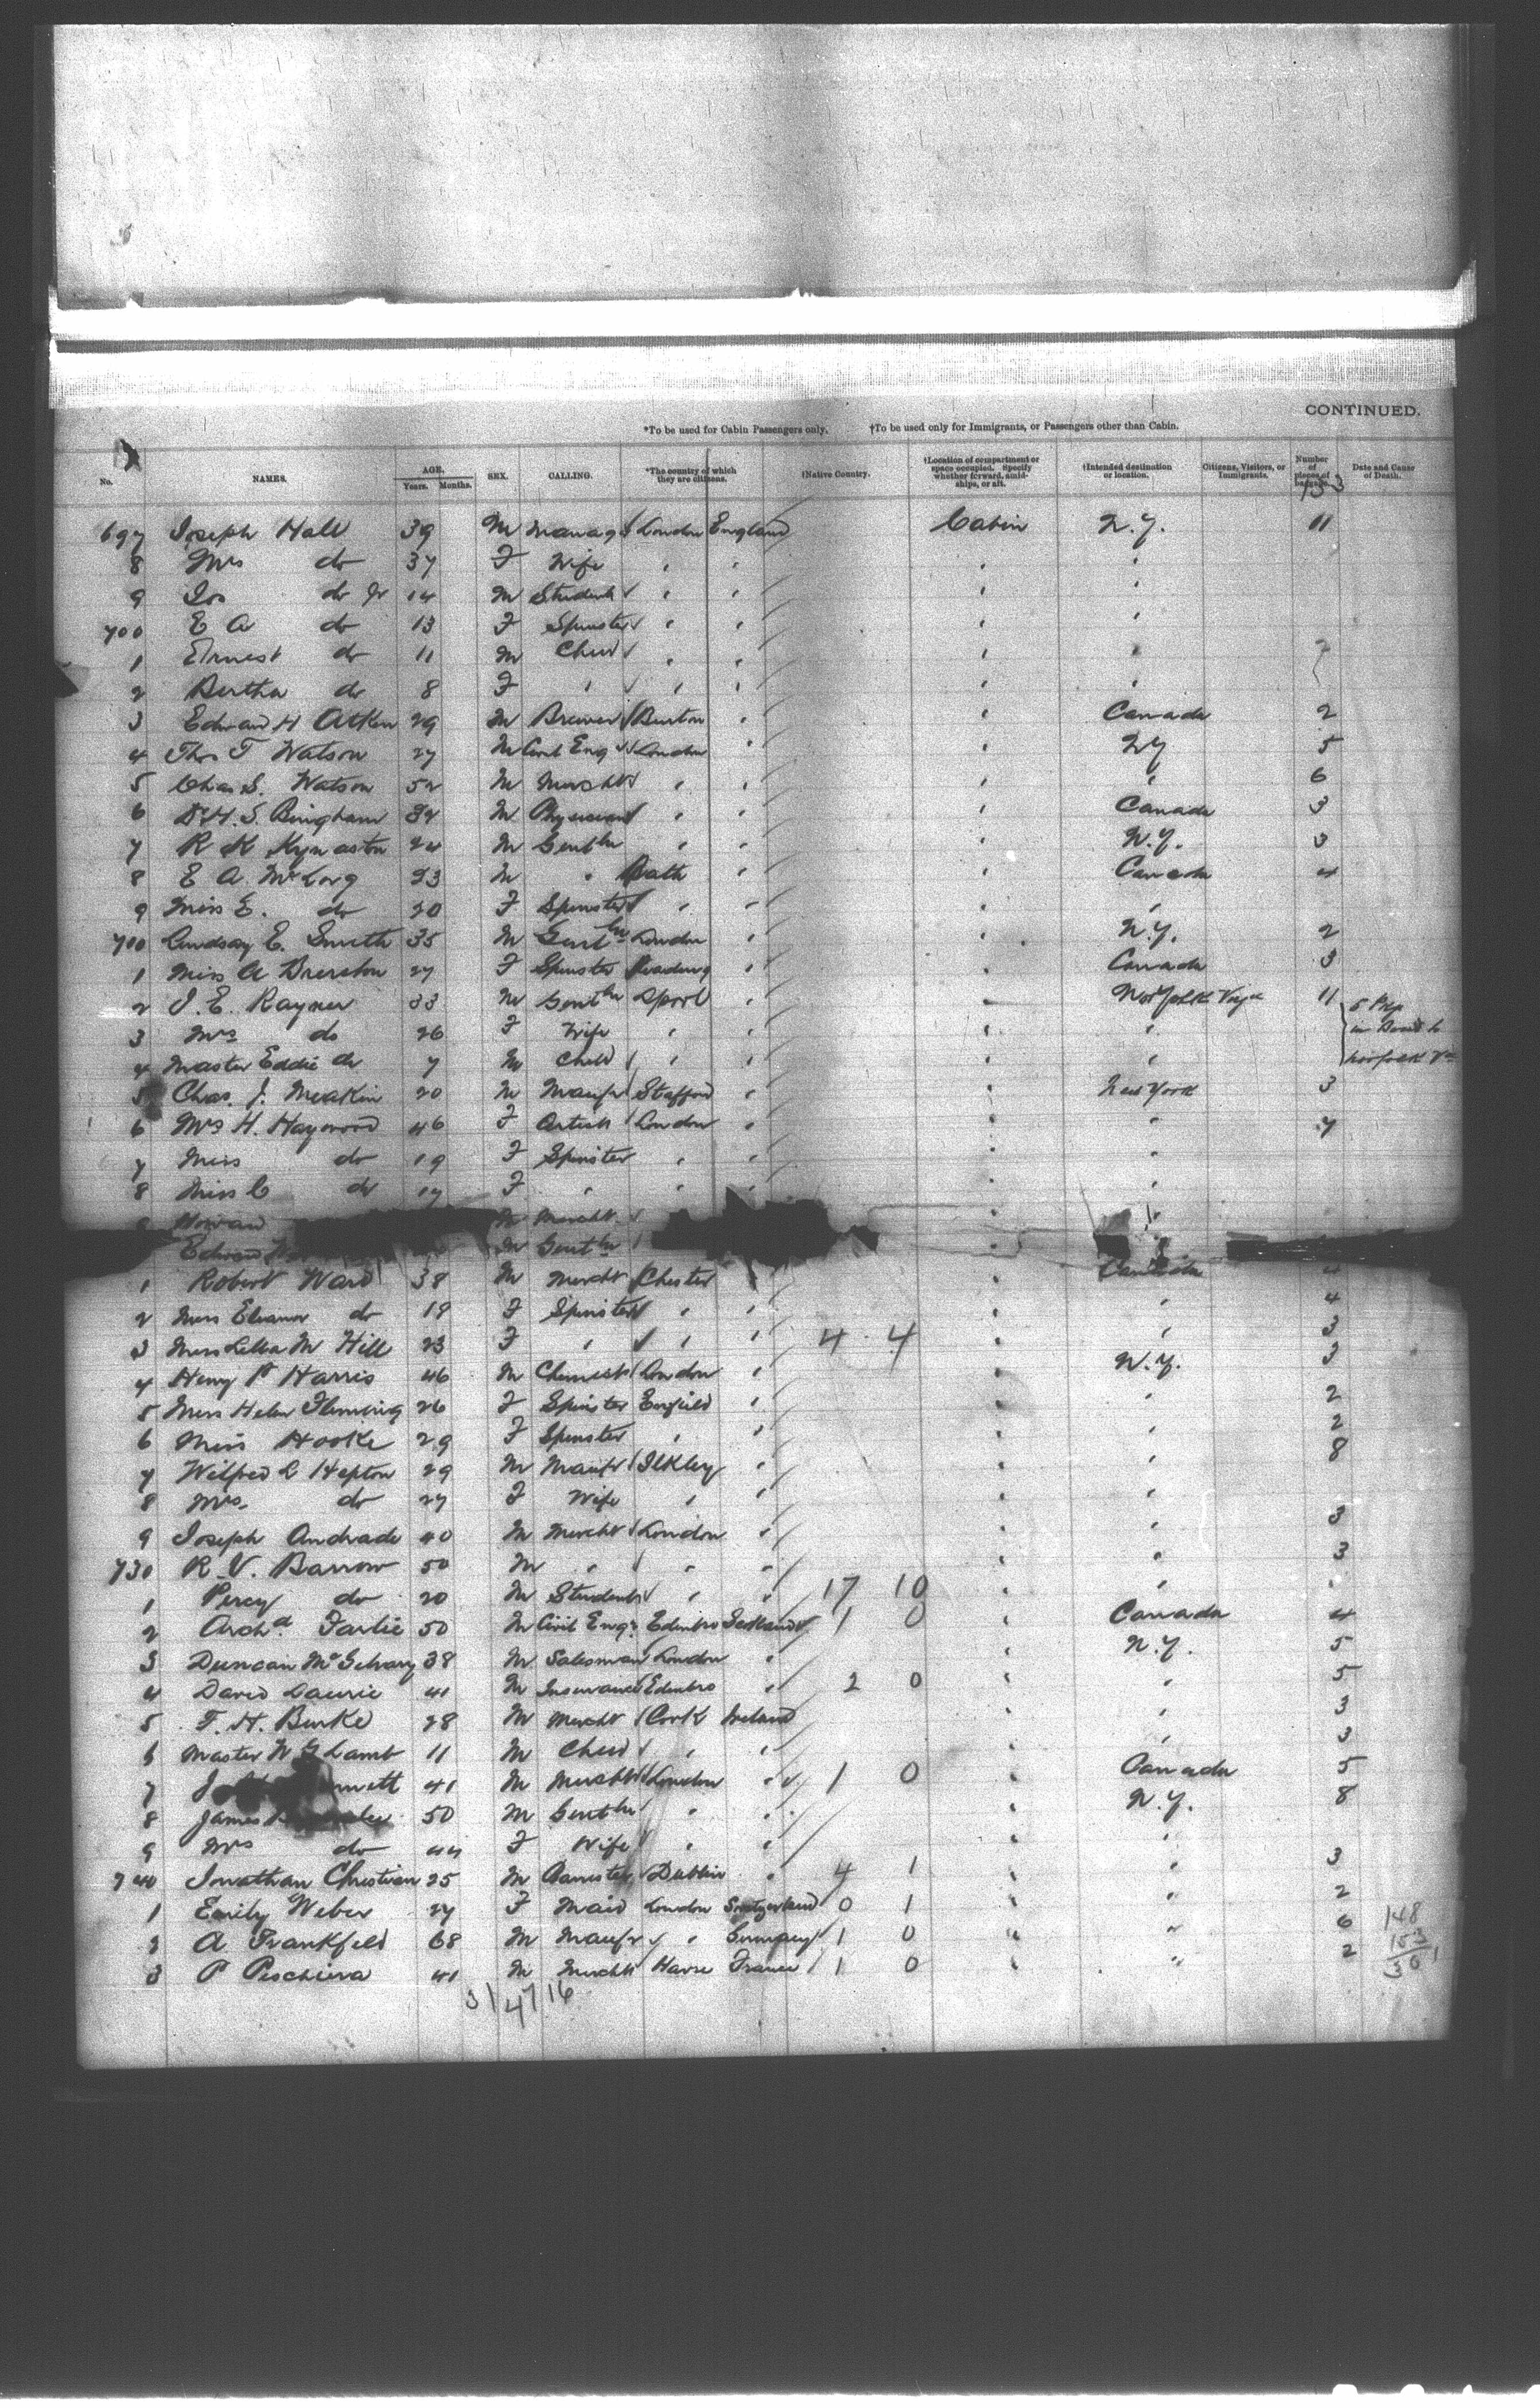 CONTINUED.
*To be used for Cabin Passengers only. †To be used only for Immigrants, or Passengers other than Cabin.
No. NAMES. AGE. Years. Months. SEX. CALLING. *The country of which they are citizens. †Native Country. †Location of compartment or space occupied. Specify whether forward, amidships, or aft. †Intended destination or location. Citizens, Visitors, or Immigrants. Number of pieces of baggage. Date and Cause of Death.
153
697 Joseph Hall 39 M Manag London England Cabin N.Y. 11
8 Mrs do 37 F Wife " " " "
9 Jos do Jr 14 M Student " " " "
700 E A do 13 F Spinster " " " "
1 Ernest do 11 M Child " " " "
2 Bertha do 8 F " " " " "
3 Edward H Aitken 29 M Brewer Burton " " Canada 2
4 Thos T Watson 27 M Civil Eng London " " NY 5
5 Chas S. Watson 52 M Mercht " " " " 6
6 Dr H. S. Bingham 32 M Physician " " " Canada 3
7 R K Kynaston 24 M Gentln " " " N.Y. 3
8 E A. McLorg 23 M " Bath " " Canada 4
9 Miss E. do 20 F Spinster " " " "
710 Lindsay E. Smith 35 M Gentln London " " N.Y. 2
1 Miss A 27 F Spinster Reading " " Canada 3
2 J. E. Rayner 33 M Gentln Lpool " Norfolk 11 5 Pkg
3 Mrs do 26 F Wife " " " in Bond to
4 Master Eddie do 7 M Child " " " " Norfolk Va
5 Chas. J. Meakin 20 M Manufr Stafford " " New York 3
6 Mrs H. Haywood 46 F Artist London " " " 7
7 Miss do 19 F Spinster " " " "
8 Miss C do 17 F " " " " "
Howard M Mercht
Edward M Gentln
1 Robert Ward 38 M Mercht Chester " Canada 4
2 Miss Eleanor do 18 F Spinster " " " " 4
3 Miss Lella M Hill 23 F " " " 4 4 " " 3
4 Henry P Harris 46 M Chemist London " " N.Y. 3
5 Miss Helen Fleming 26 F Spinster Enfield " " " 2
6 Miss Hooke 29 F Spinster " " " 2
7 Wilfred L Hepton 29 M Manufr Ilkley " " " 8
8 Mrs. do 27 F Wife " " " "
9 Joseph Andrade 40 M Mercht London " " " 3
730 R. V. Barrow 50 M " " " " " 3
1 Percy do 20 M Student " " 17 10 " "
2 Archd. Farlie 50 M Civil Engr Edinbro Scotland 1 0 " Canada 4
3 Duncan McGilvary 38 M Salesman London " " N.Y. 5
4 David Laurie 41 M Insurance Edinbro " 2 0 " " 5
5 T. H. Burke 28 M Mercht Cork Ireland " " 3
6 Master W G Lamb 11 M Child " " " " 3
7 J 41 M Mercht London " 1 0 " Canada 5
8 James 50 M Gentln " " " N.Y. 8
9 Mrs do 44 F Wife " " " "
740 Jonathan Christian 25 M Barrister Dublin " 4 1 " " 3
1 Emily Weber 27 F Maid London Switzerland 0 1 " " 2
2 A Frankfeld 68 M Manufr " Germany 1 0 " " 6 148
3 P Peschiera 41 M Mercht Havre France 1 0 " " 2 153
301
31/47/16